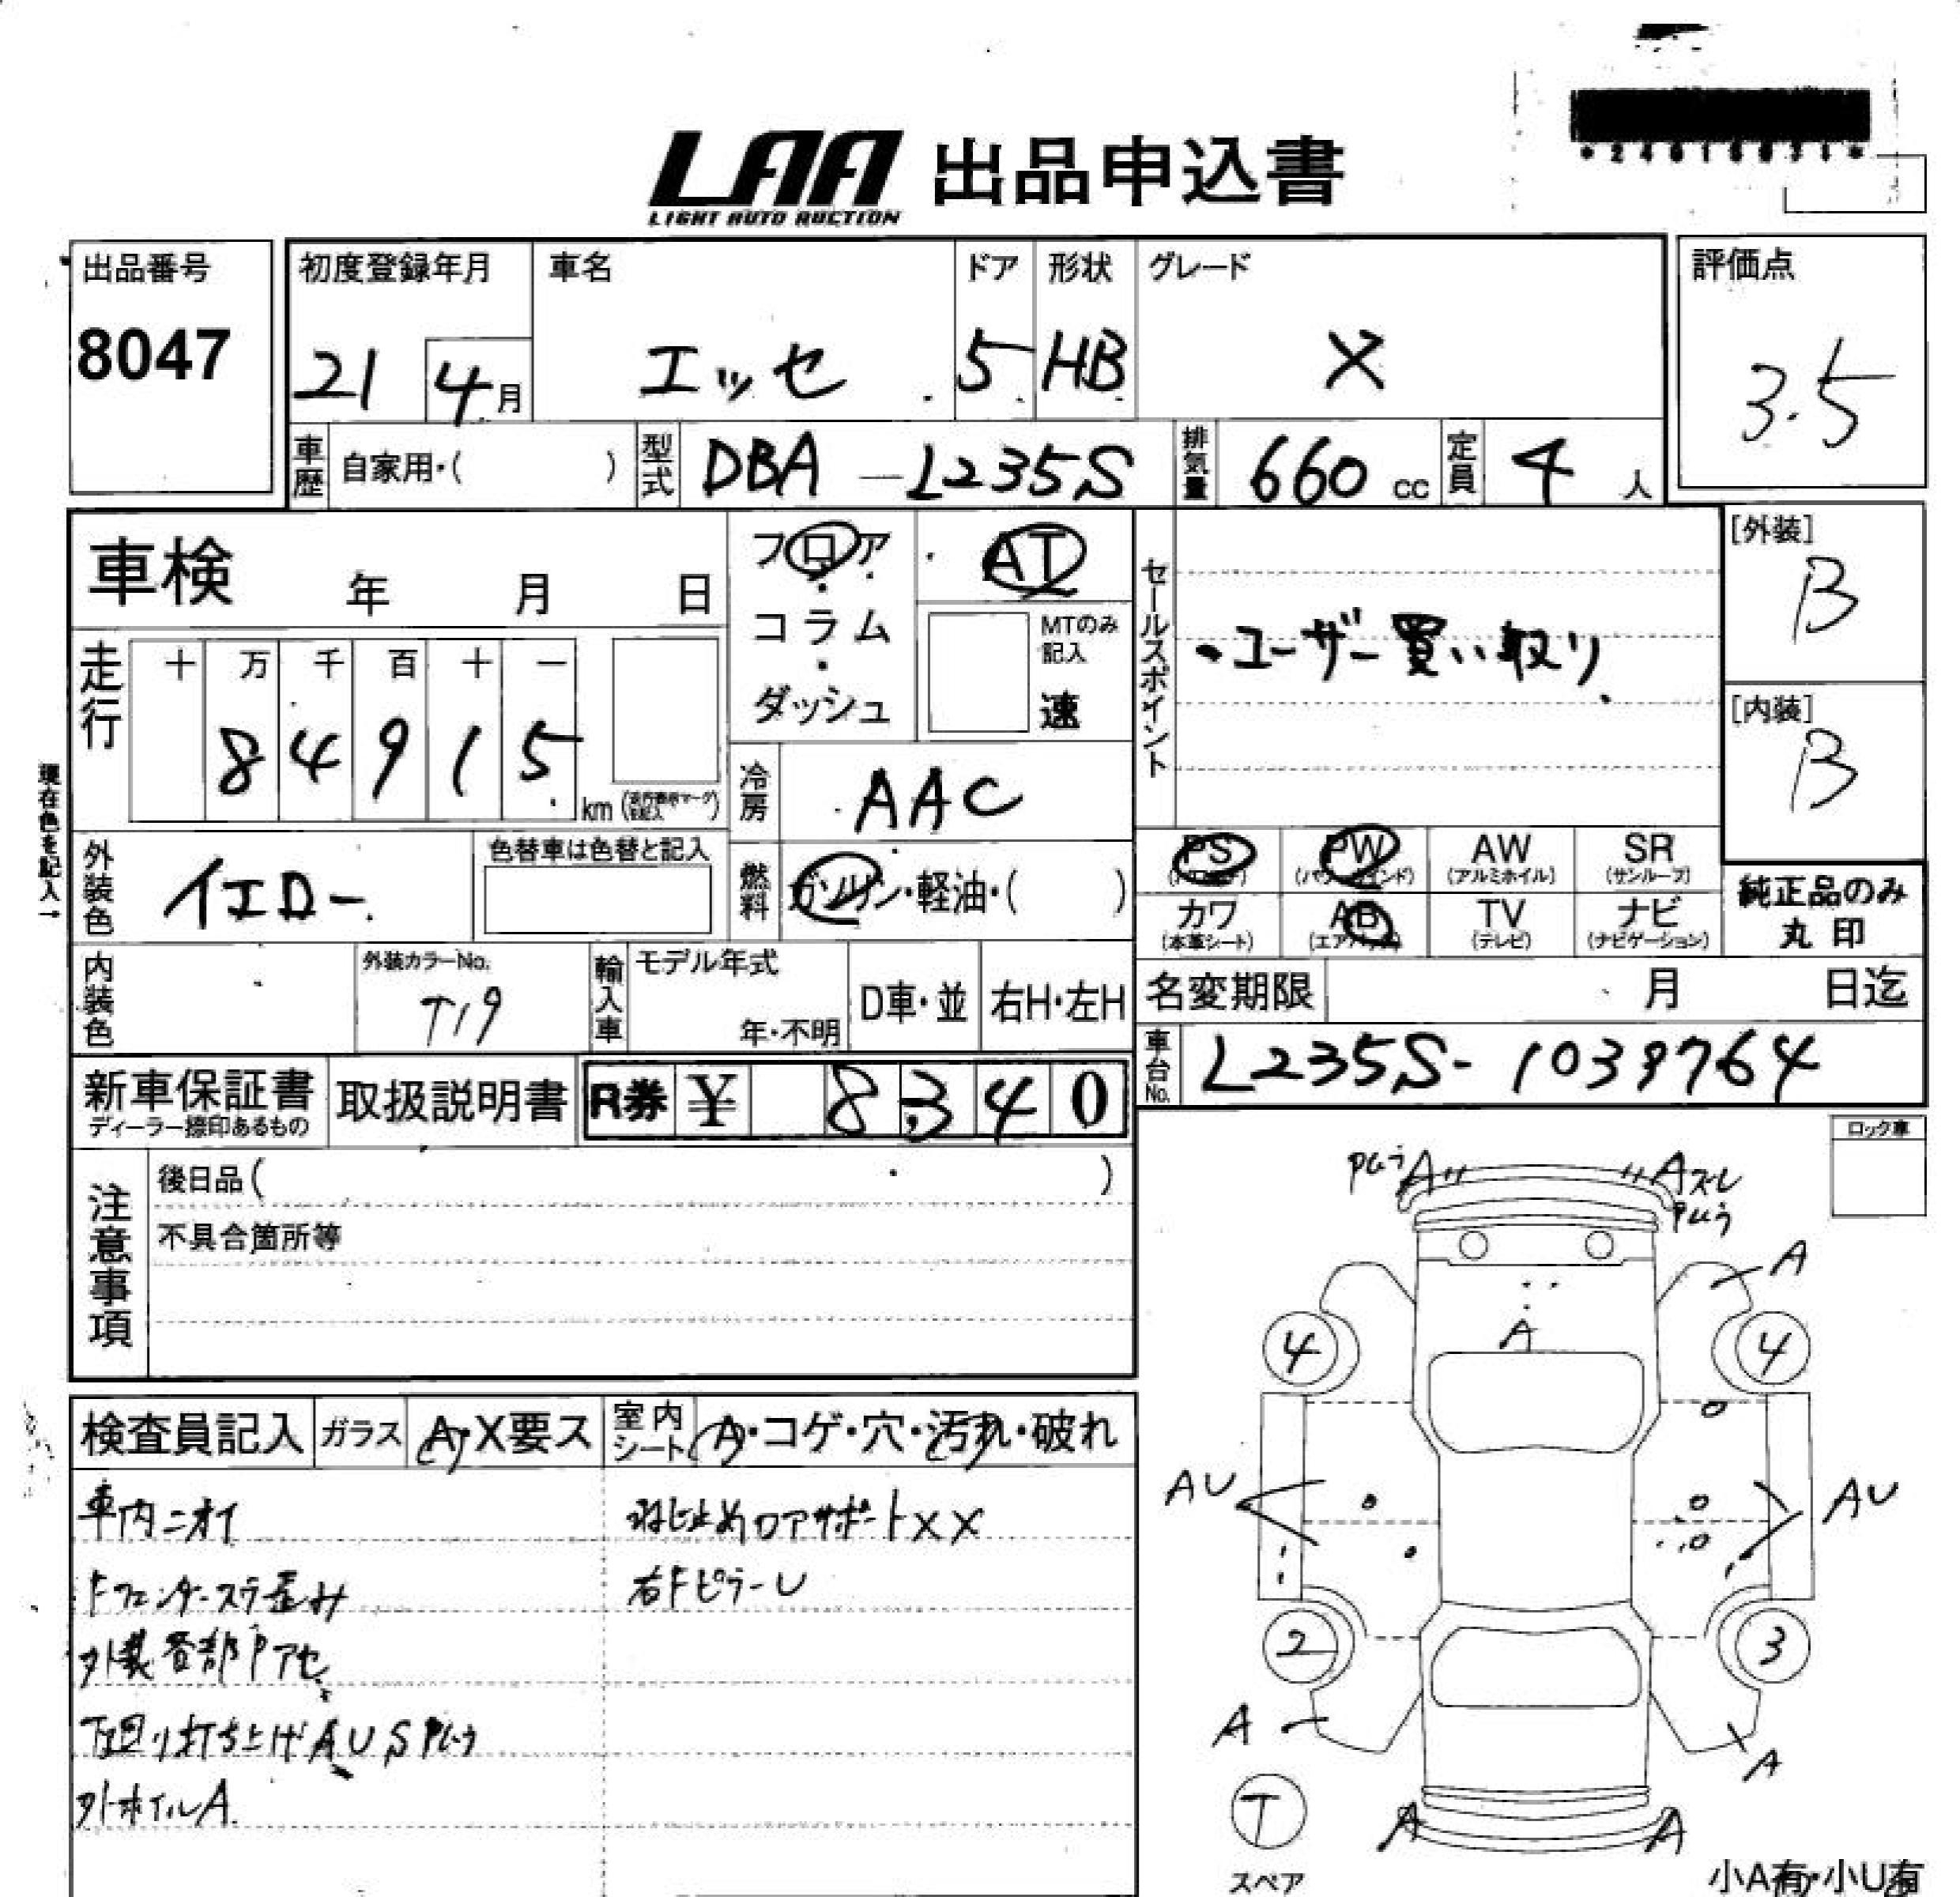 LAA 出品申込書
LIGHT AUTO AUCTION
出品番号
8047
初度登録年月
21 4月
車名
エッセ
ドア
5
形状
HB
グレード
X
評価点
3.5
車歴 自家用・( )
型式 DBA-L235S
排気量 660 cc
定員 4 人
車検 年 月 日
フロア・コラム・ダッシュ
AT
MTのみ記入
速
セールスポイント
・ユーザー買い取り
[外装]
B
[内装]
B
走行
十 万 千 百 十 一
8 4 9 1 5 km
現在色を記入→
冷房 AAC
外装色 イエロー
色替車は色替と記入
燃料 ガソリン・軽油・( )
PS PW AW SR
(パワーウインド) (アルミホイル) (サンルーフ)
カワ AB TV ナビ
(本革シート) (エアバッグ) (テレビ) (ナビゲーション)
純正品のみ
丸印
内装色
外装カラーNo.
T19
輸入車
モデル年式
年・不明
D車・並
右H・左H
名変期限 月 日迄
車台No. L235S-1039764
新車保証書
ディーラー捺印あるもの
取扱説明書
R券 ¥ 8340
ロック車
注意事項
後日品( )
不具合箇所等
Pムラ A A ズレ
Pムラ
A
A
4 4
AU AU
2 3
A A
T
スペア
A A
小A有・小U有
検査員記入 ガラス A・X要ス 室内シート A・コゲ・穴・汚れ・破れ
車内ニオイ
Fフェンダーステ歪み
外装各部Pアセ
下回り打ち上げAUSPムラ
外ホイルA
はじ止めロアサポートXX
右FピラーU